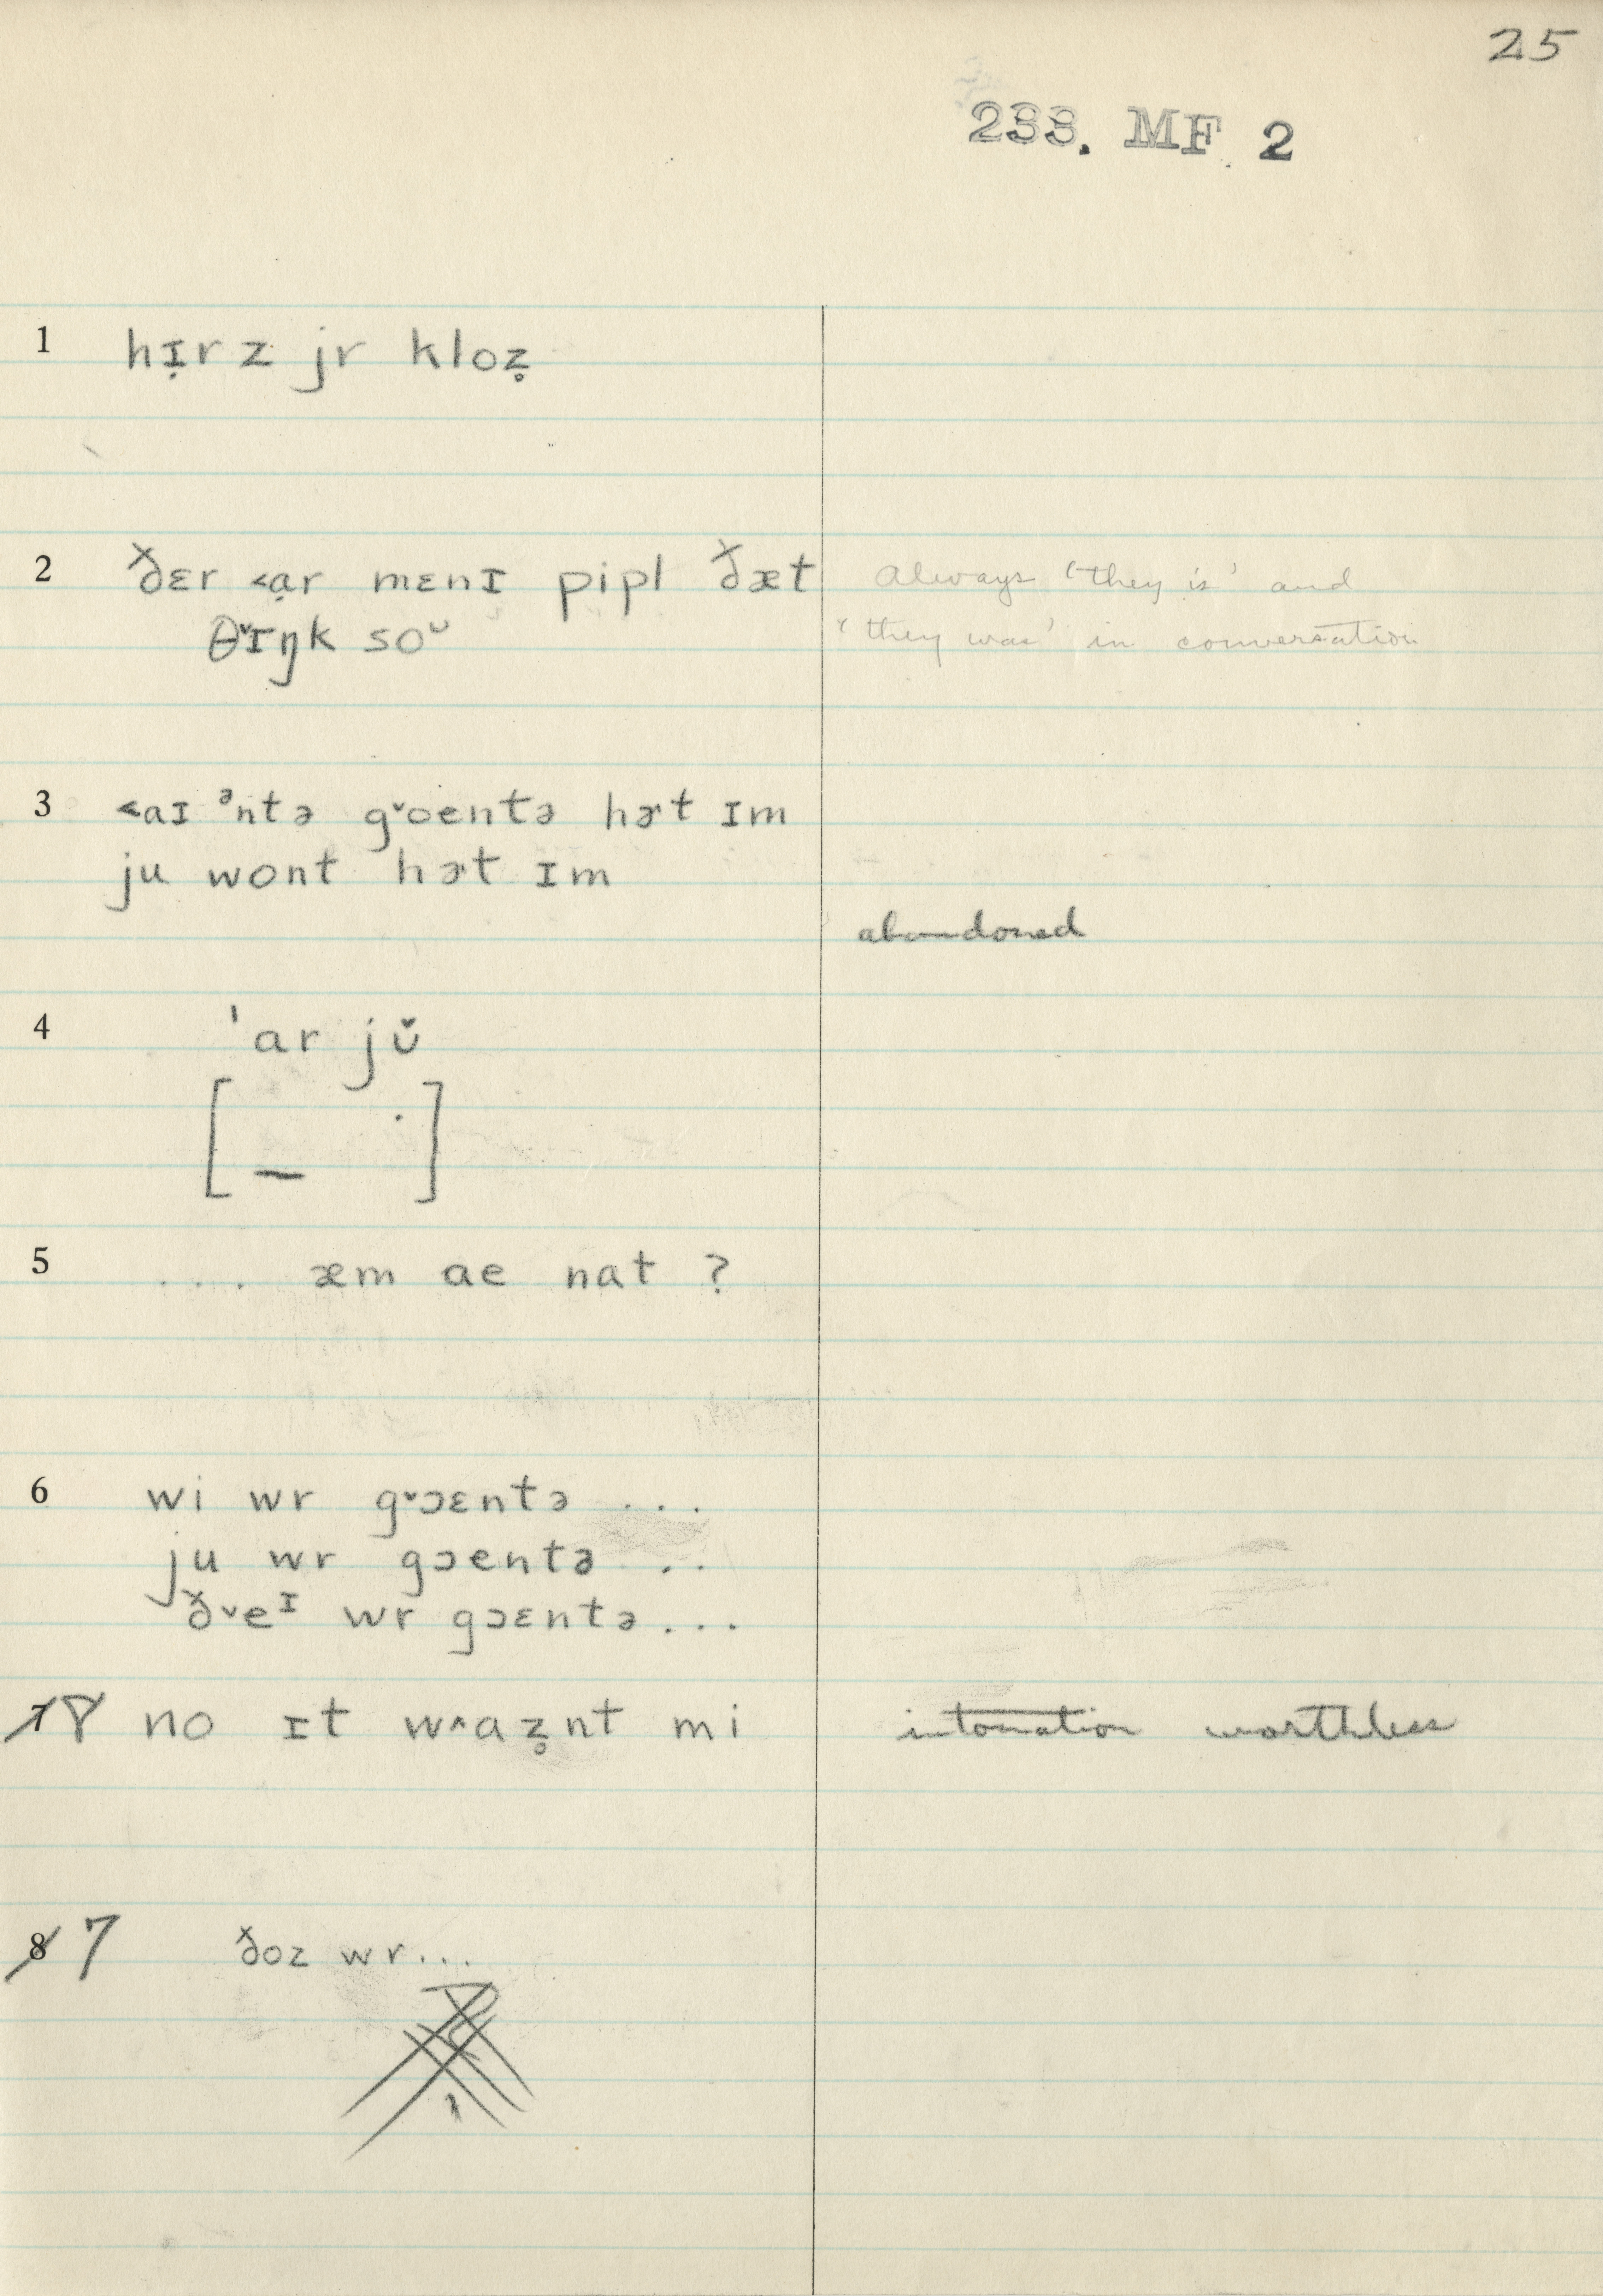 25
233. MF 2
1 hɪ̣rz jr kloẓ̥
2 ðɛr ˂ạr mɛnɪ pipl ðæt
θ˅ɪŋk soᴗ
Always 'they is' and
'they was' in conversation
3 ˂aɪ ᵊntə g˅oentə hɚt ɪm
ju wont hɚt ɪm
abandoned
4 ˈar jʊ̌
[ – · ]
5 .... æm ae nat ?
6 wi wr g˅ɔɛntə ...
ju wr gɔentə ..
ð˅eᶦ wr gɔɛntə ...
7 8 no ɪt w^aẓ̥nt mi
intonation worthless
8 7 ðoz wr...